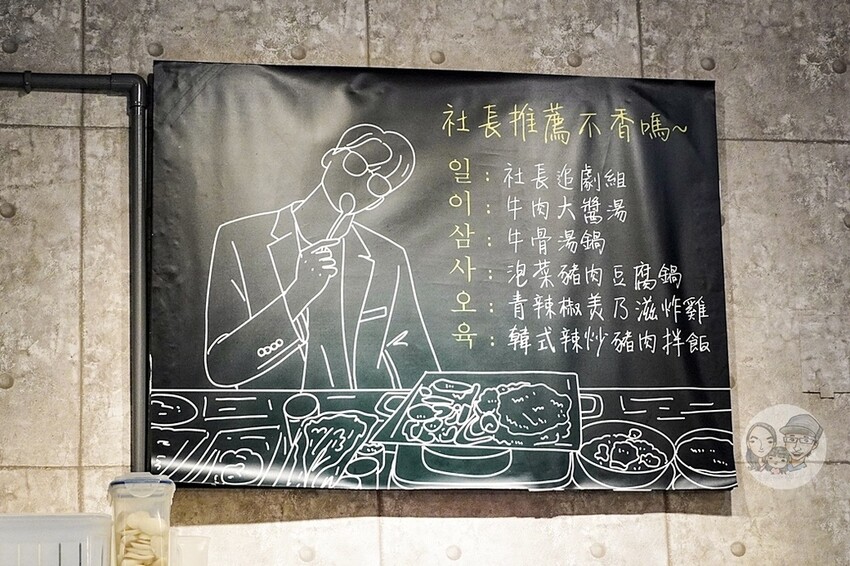 社長推薦不香嗎~
일:社長追劇組
이:牛肉大醬湯
삼:牛骨湯鍋
사:泡菜豬肉豆腐鍋
오:青辣椒美乃滋炸雞
육:韓式辣炒豬肉拌飯